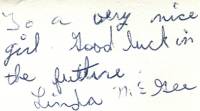 To a very nice
girl. Good luck in
the futture.
Linda McGee